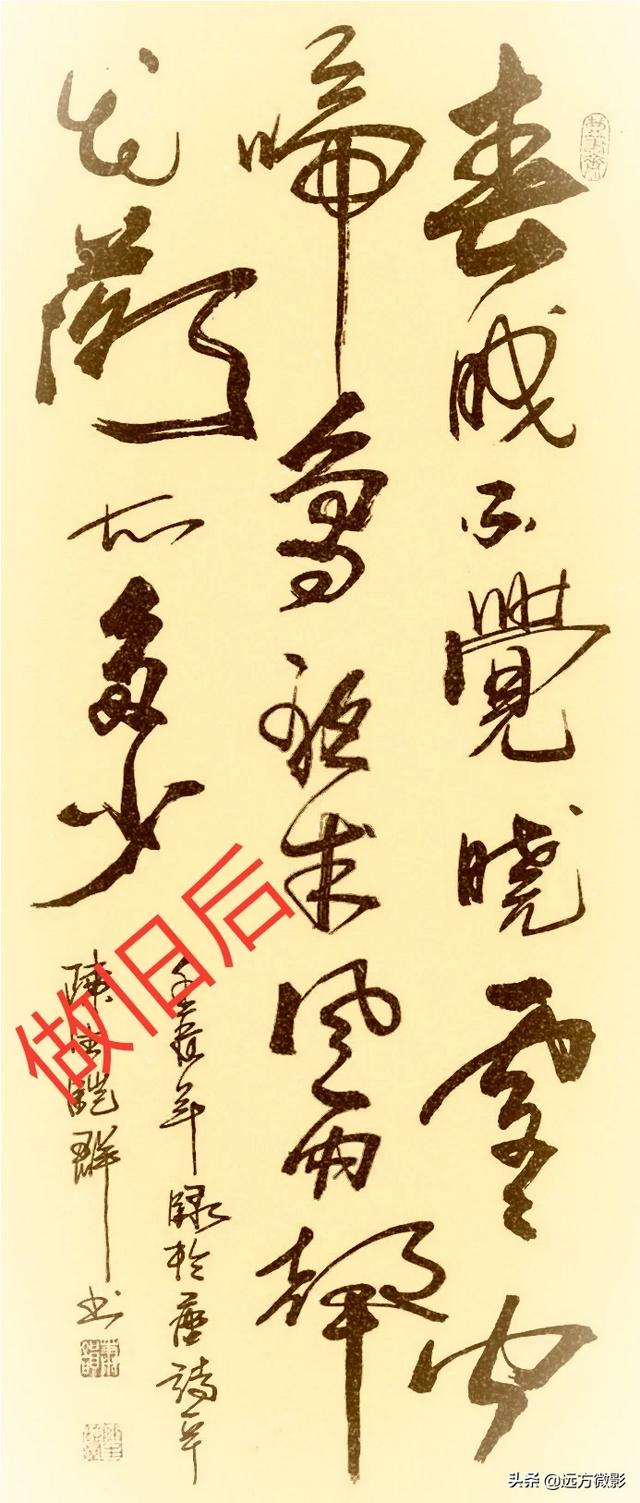 春眠不覺曉處々聞
啼鳥夜来風雨聲
花落知多少
年録於唐詩一
陳书
做旧后
头条 @远方微影